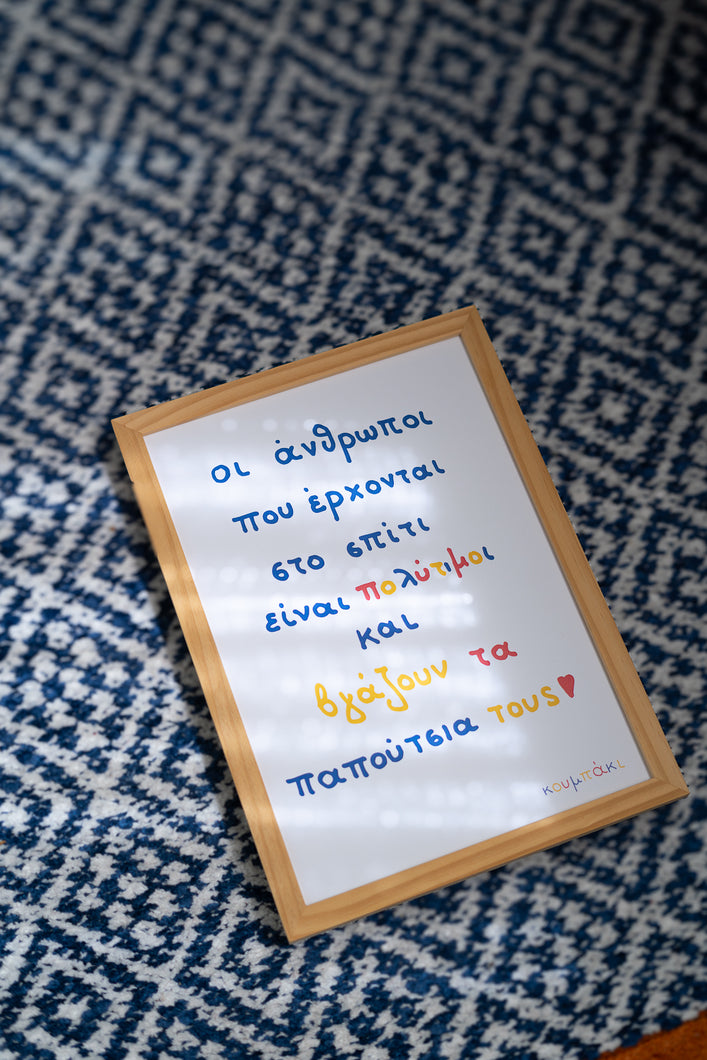 οι άνθρωποι
που έρχονται
στο σπίτι
είναι πολύτιμοι
και
βγάζουν τα
παπούτσια τους♥
κουμπάκι